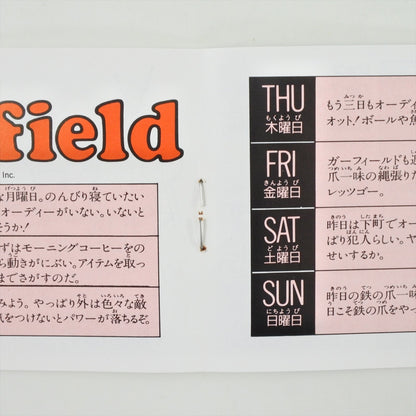 field
Inc.
な月曜日。のんびり寝ていたい
オーディーがいない。いないと
そうか!
ずはモーニングコーヒーをの
ち動きがにぶい。アイテムを取っ
までさがすのだ。
みよう。やっぱり外は色々な敵
気をつけないとパワーが落ちるぞ。
THU
もくようび
木曜日
もう三日もオーディ
オット!ボールや魚
FRI
きんようび
金曜日
ガーフィールドも
爪一味の縄張り
レッツゴー。
SAT
どようび
土曜日
昨日は下町でオー
ぱり犯人らしい。ヤ
せいするか。
SUN
にちようび
日曜日
昨日の鉄の爪一味
日こそ鉄の爪をやっ